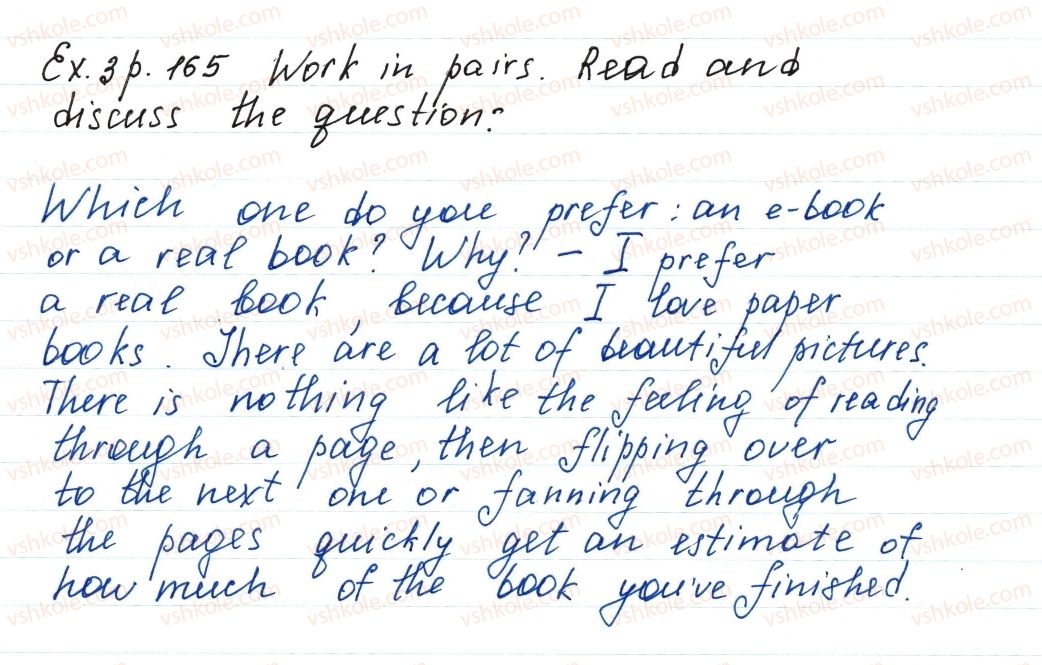 Ex. 3 p. 165 Work in pairs. Read and
discuss the question:
Which one do you prefer: an e-book
or a real book? Why? – I prefer
a real book, because I love paper
books. There are a lot of beautiful pictures.
There is nothing like the feeling of reading
through a page, then flipping over
to the next one or fanning through
the pages quickly get an estimate of
how much of the book you've finished.